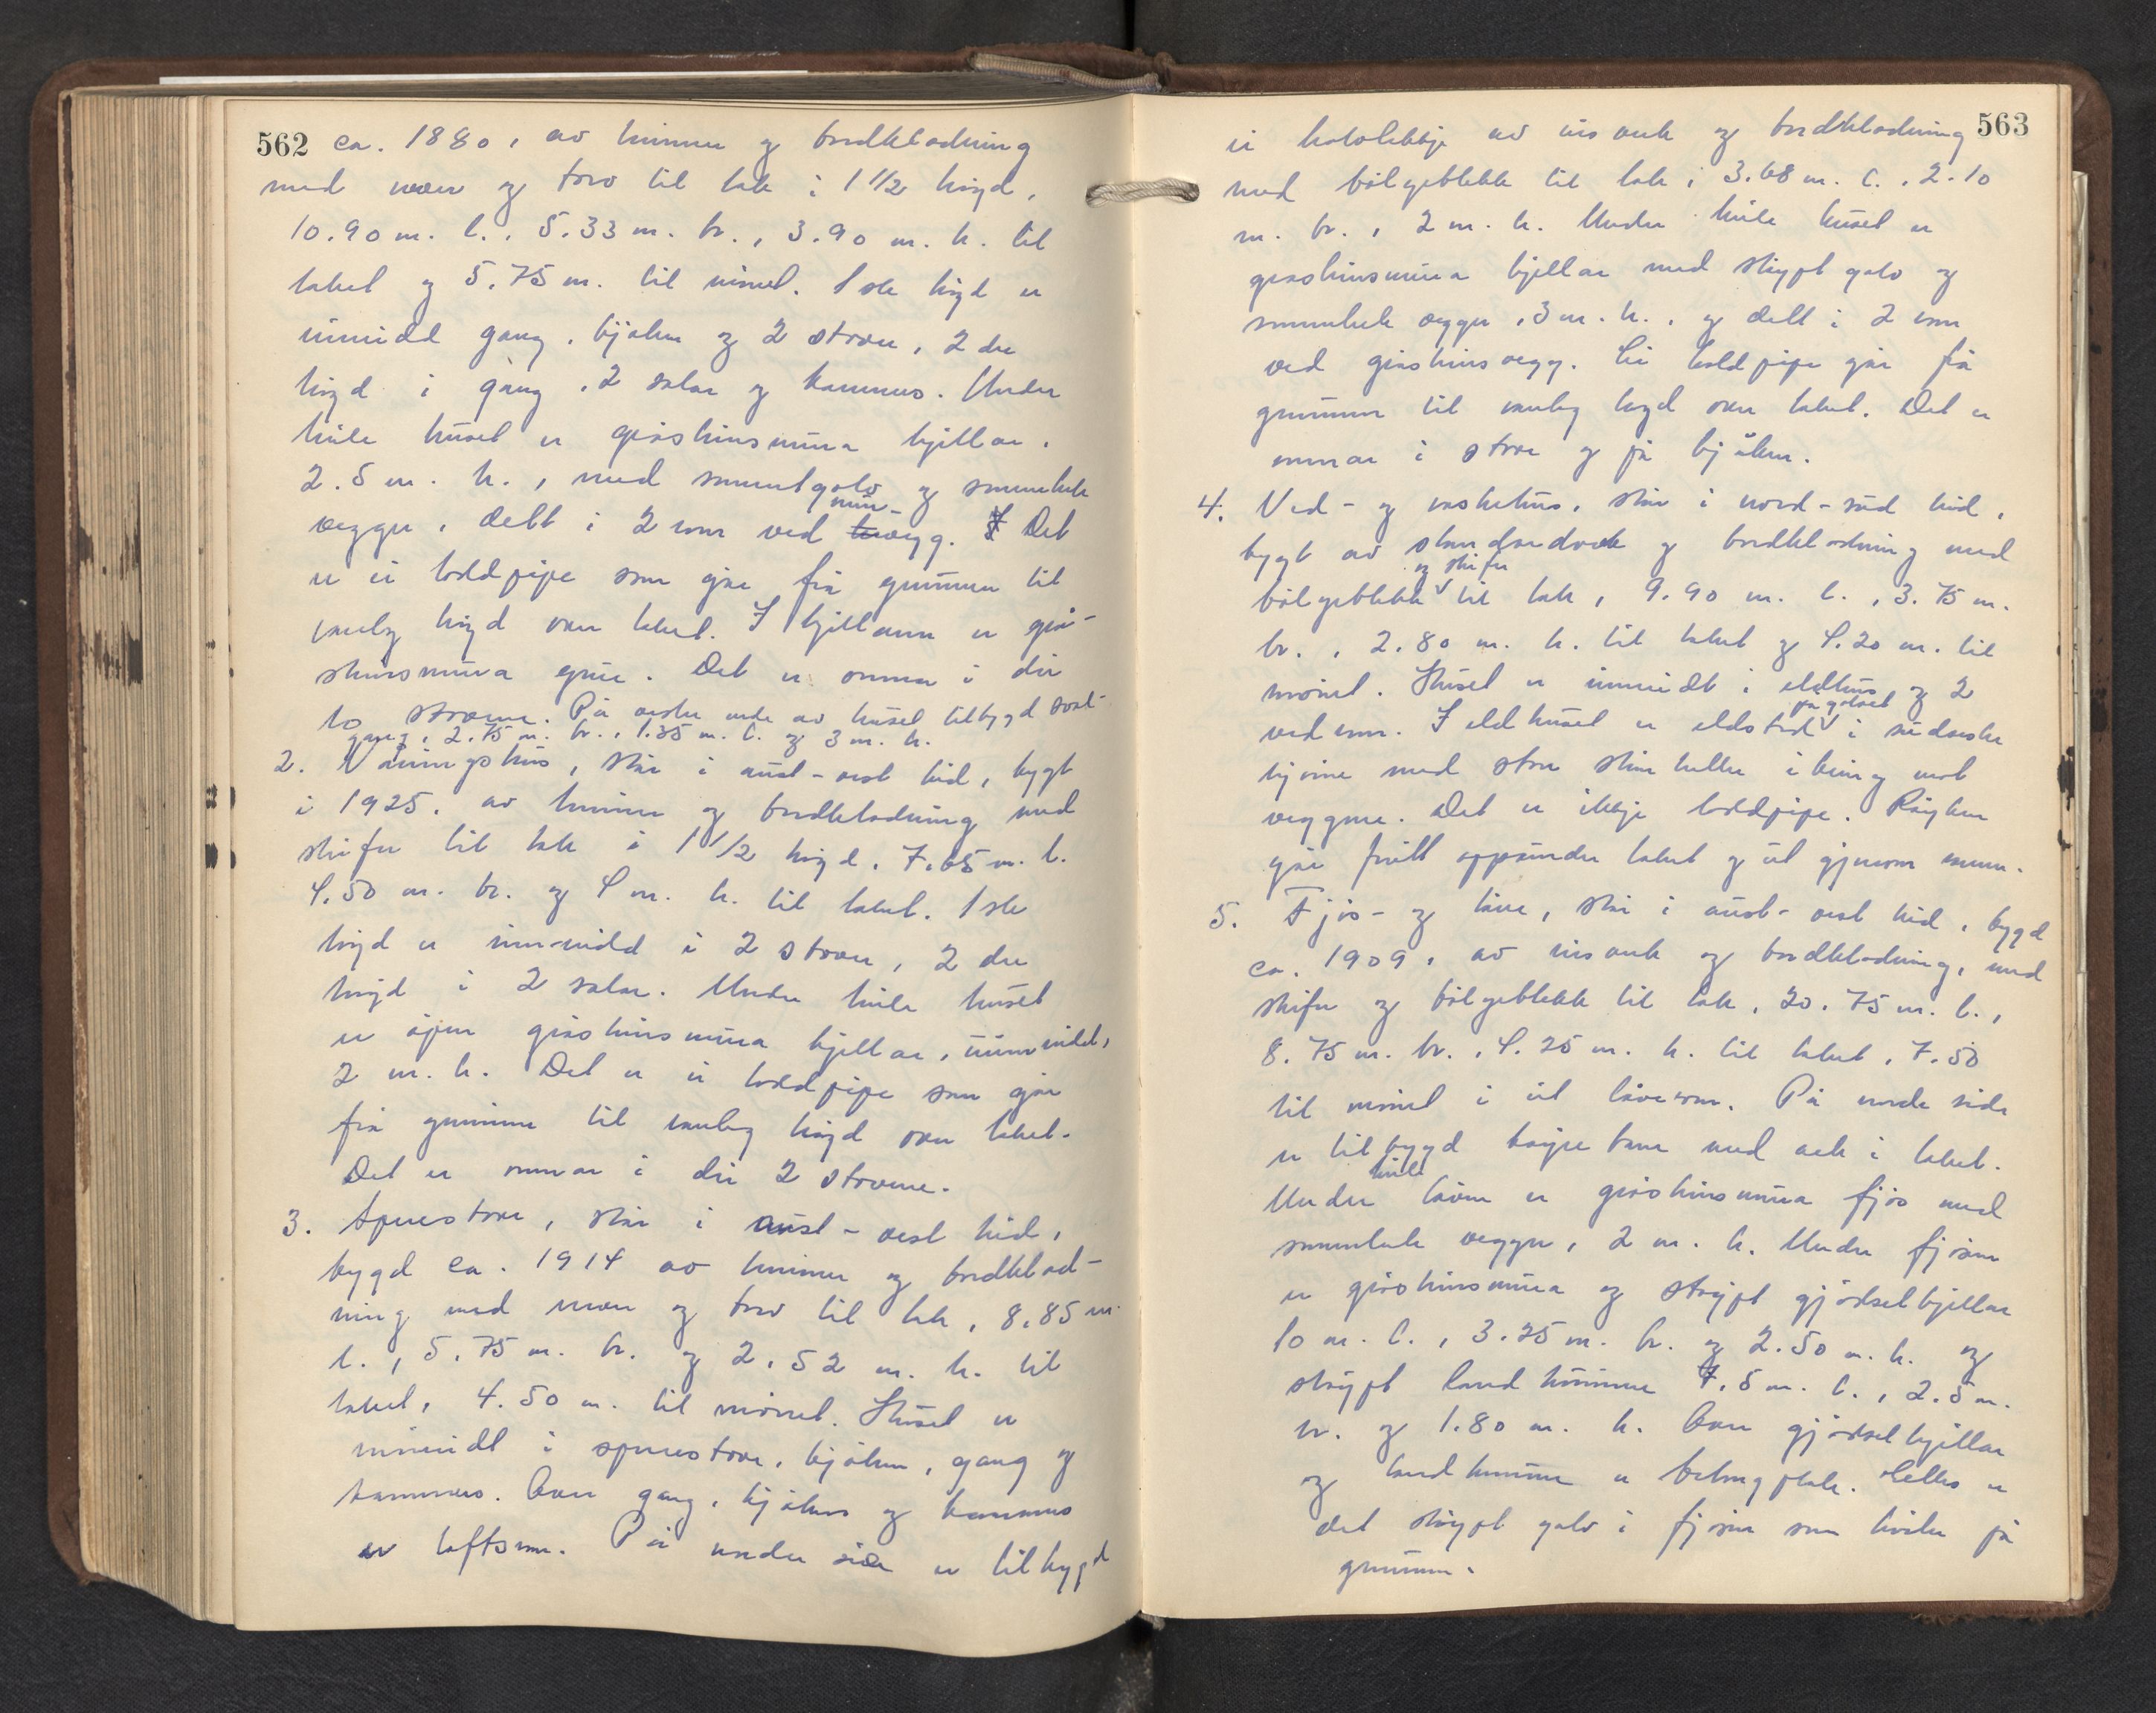 562
ca. 1880, av timmer og bordkledning
med næver og torv til tak i 1 1/2 høgd,
10.90 m. l., 5.33 m. br., 3.90 m. h. til
taket og 5.75 m. til mønet. 1ste høgd er
innreidd gang, kjøken og 2 stover, 2dre
høgd i gang, 2 salar og kammers. Under
heile huset er gråsteinsmura kjellar,
2.5 m. h., med sementgolv og sementerte
vegger, delt i 2 rom ved mur-vegg. Det
er ei loddpipe som går frå grunnen til
vanleg høgd over taket. I kjellaren er grå-
steinsmura grue. Det er omnar i dei
to stovene. På vestre ende av huset tilbygd sval-
gang, 2.75 m. br., 1.35 m. l. og 3 m. h.
2. Våningshus, står i aust-vest leid, bygt
i 1925, av timmer og bordkledning med
skifer til tak i 1 1/2 høgd, 7.65 m. l.
4.50 m. br. og 4 m. h. til taket. 1ste
høgd er innreidd i 2 stover, 2dre
høgd i 2 salar. Under heile huset
er open gråsteinsmura kjellar, uinnreidd,
2 m. h. Det er ei loddpipe som går
frå grunnen til vanleg høgd over taket.
Det er omnar i dei 2 stovene.
3. Aarestove, står i aust-vest leid,
bygd ca. 1914 av timmer og bordkled-
ning med never og torv til tak, 8.85 m.
l., 5.75 m. br. og 2.52 m. h. til
taket, 4.50 m. til mønet. Huset er
innreidt i stove, kjøken, gang og
kammers. Over gang, kjøken og kammers
er loftsrom. På nordre side er tilbygd
563
ei av bisverk og bordkledning
med bølgeblekk til tak, 3.68 m. l., 2.10
m. br., 2 m. h. Under heile huset er
gråsteinsmura kjellar med støypt golv og
sementerte vegger, 3 m. h., og delt i 2 rom
ved gråsteinsvegg. Ei loddpipe går frå
grunnen til vanleg høgd over taket. Det er
omnar i stove og på kjøken.
4. Ved- og vaskehus, står i nord-sud leid,
bygt av standardverk og bordkledning med
bølgeblekk og skifer til tak, 9.90 m. l., 3.75 m.
br., 2.80 m. h. til taket og 4.20 m. til
mønet. Huset er innreidt i eldhus og 2
vedrom. I eldhuset er eldstad på golvet i sudvestre
hjørne med store steinheller ikring mot
veggene. Det er ikkje loddpipe. Røyken
går fritt oppunder taket og ut gjenom
5. Fjøs- og løe, står i aust-vest leid, bygd
ca. 1909, av bisverk og bordkledning, med
skifer og bølgeblekk til tak, 20.75 m. l.,
8.75 m. br., 4.25 m. h. til taket, 7.50
til mønet i eit løerom. På nordre side
er tilbygd køyrebru med ark i taket.
Under heile løen er gråsteinsmura fjøs med
sementerte vegger, 2 m. h. Under fjøsen
er gråsteinsmura og støypt gjødselkjellar
10 m. l., 3.25 m. br. og 2.50 m. h. og
støypt landkumme 7.5 m. l., 2.5 m.
br. og 1.80 m. h. Over gjødselkjellar
og landkumme er betongplate. Elles er
det støypt golv i fjøsen som kviler på
grunnen.